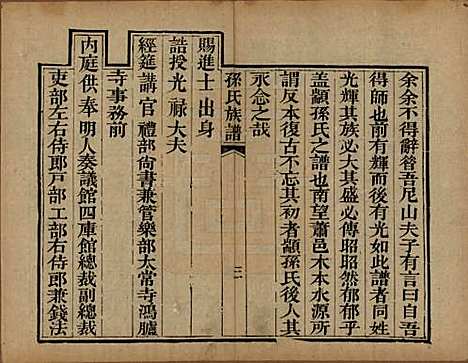 余余不得辭昝吾尼山夫子有言曰自吾
得師也前有輝而有光如此譜者同姓
光輝其族必大其盛必傳昭昭然郁郁乎
盖顓孫氏之譜也南望蕭邑木本水源所
謂反本復古不忘其初者顓孫氏後人其
永念之哉
孫氏族譜
二
賜進士出身
誥授光禄大夫
經筵講官禮部尙書兼管樂部太常寺鴻臚
寺事務前
内庭供奉明人奏議館四庫館總裁副總裁
吏部左右侍郎戸部工部右侍郎兼錢法